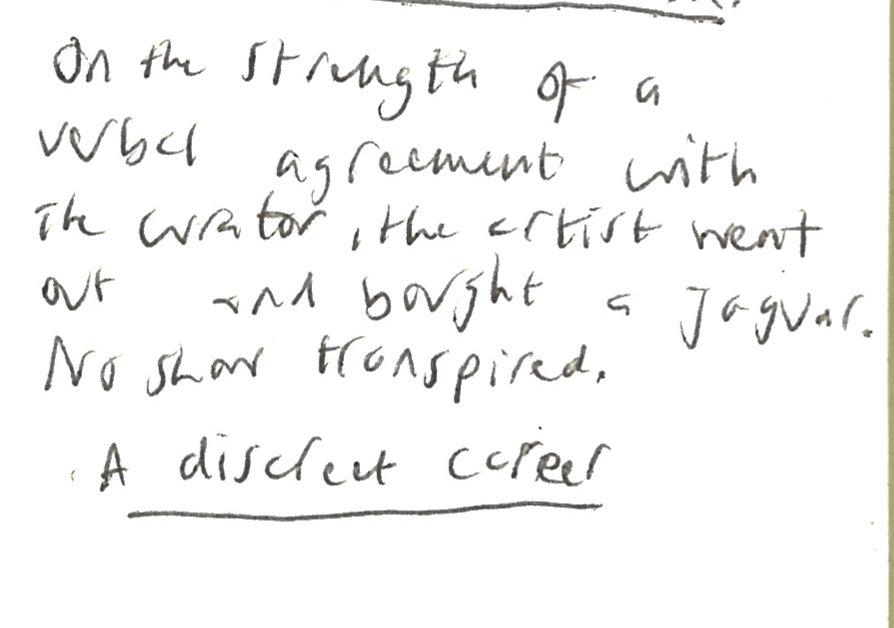 On the strength of a
verbal agreement with
the curator, the artist went
out and bought a Jaguar.
No show transpired.
A discreet career